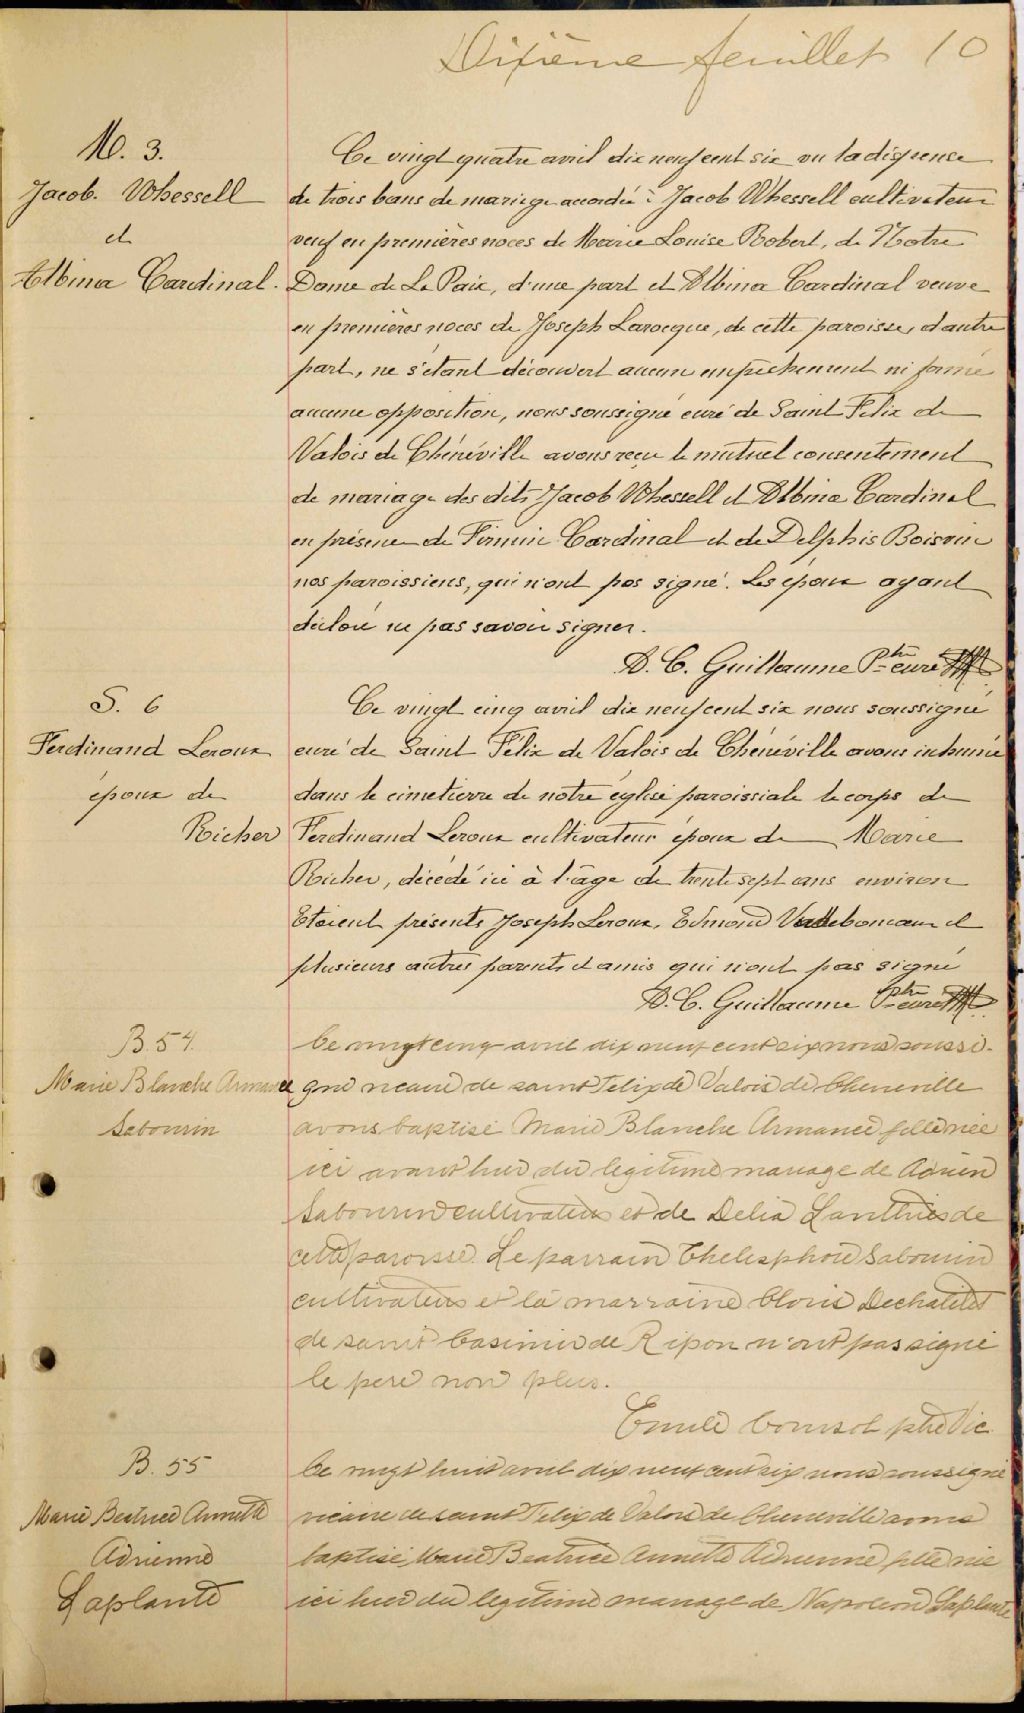 Dixième feuillet 10
M. 3.
Jacob. Whessell
et
Albina Cardinal.
Ce vingt quatre avril dix neuf cent six vu la dispense
de trois bans de mariage accordée à Jacob Whessell cultivateur
veuf en premières noces de Marie Louise Robert, de Notre
Dame de La Paix, d'une part et Albina Cardinal veuve
en premières noces de Joseph Larocque, de cette paroisse, d'autre
part, ne s'étant découvert aucun empêchement ni formé
aucune opposition, nous soussigné curé de Saint Félix de
Valois de Chénéville avons reçu le mutuel consentement
de mariage des dits Jacob Whessell et Albina Cardinal
en présence de Firmin Cardinal et de Delphis Boisvin
nos paroissiens, qui n'ont pas signé. Les époux ayant
déclaré ne pas savoir signer.
D. C. Guillaume Ptre curé
S. 6
Ferdinand Leroux
époux de
Richer
Ce vingt cinq avril dix neuf cent six nous soussigné
curé de Saint Félix de Valois de Chénéville avons inhumé
dans le cimetierre de notre église paroissiale le corps de
Ferdinand Leroux cultivateur époux de Marie
Richer, décédé ici à l'âge de trente sept ans environ
Etaient présents Joseph Leroux, Edmond Vadeboncoeur et
plusieurs autres parents et amis qui n'ont pas signé
D. C. Guillaume Ptre curé
B. 54.
Marie Blanche Armance
Sabourin
Ce vingt cinq avril dix neuf cent six nous soussi-
gné vicaire de saint Felix de Valois de Cheneville
avons baptisé Marie Blanche Armance fille née
ici avant hier du legitime mariage de Adrien
Sabourin cultivateur et de Delia Lanthier de
cette paroisse. Le parrain Thelesphore Sabourin
cultivateur et la marraine Cloris Dechatelet
de saint Casimir de Ripon n'ont pas signé
le pere non plus.
Emile Coursol ptre Vic.
B. 55
Marie Beatrice Annette
Adrienne
Laplante
Ce vingt huit avril dix neuf cent six nous soussigné
vicaire de saint Felix de Valois de Cheneville avons
baptisé Marie Beatrice Annette Adrienne fille née
ici hier du legitime mariage de Napoleon Laplante